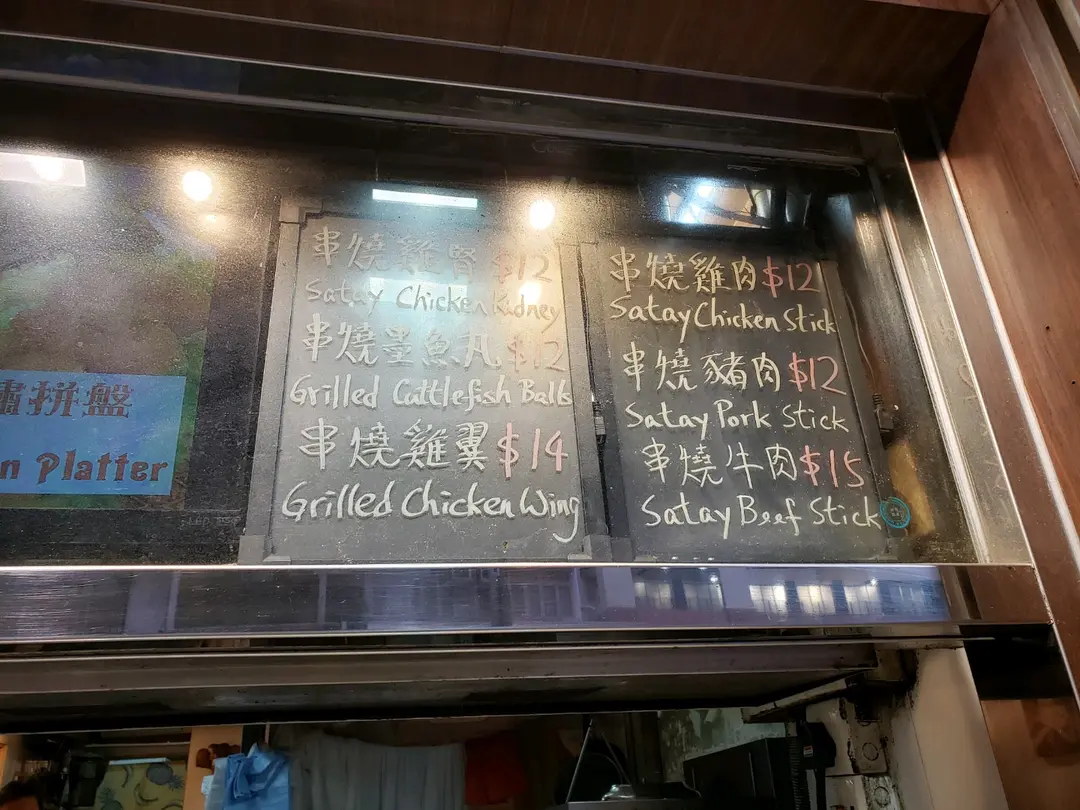 串燒雞腎 $12
Satay Chicken Kidney
串燒墨魚丸 $12
Grilled Cuttlefish Balls
串燒雞翼 $14
Grilled Chicken Wing
串燒雞肉 $12
Satay Chicken Stick
串燒豬肉 $12
Satay Pork Stick
串燒牛肉 $15
Satay Beef Stick
拼盤
Platter